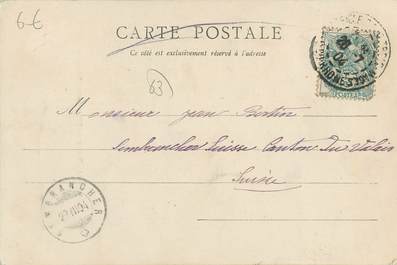 6-€
CARTE POSTALE
Ce côté est exclusivement réservé à l'adresse
63
Monsieur Jean Bertin
Sembrancher Suisse Canton du Valais
Suisse
POSTES
SEMBRANCHER
04